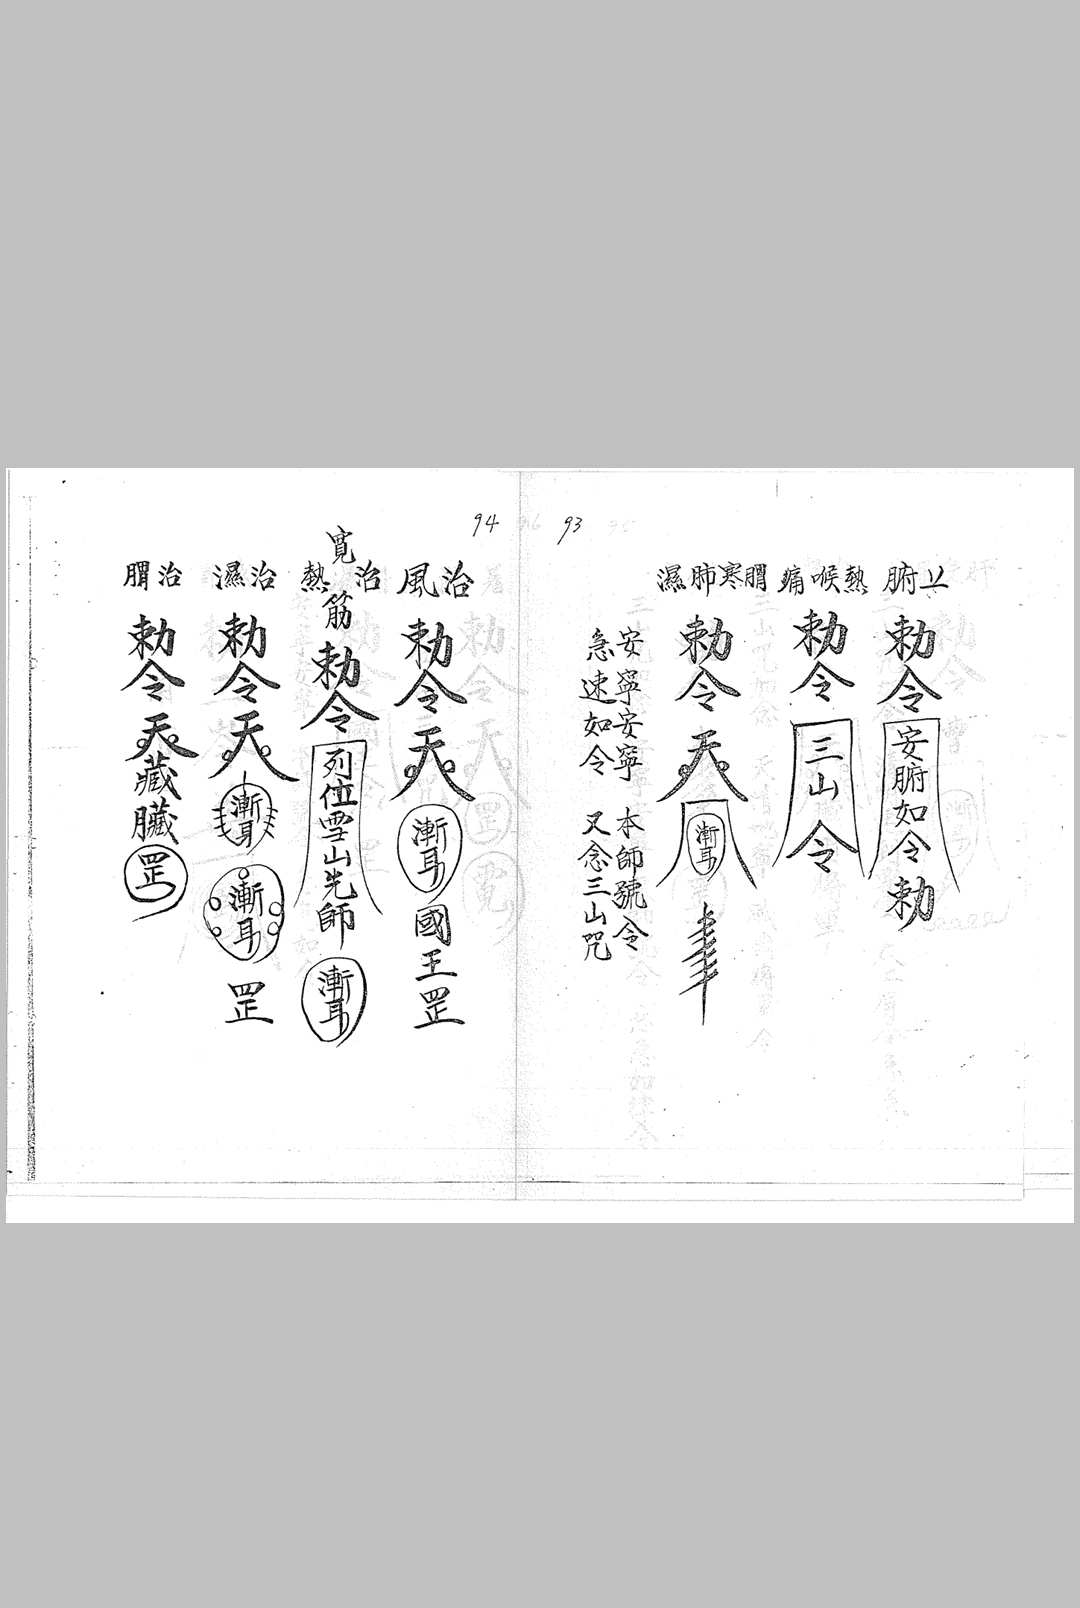 93
腑上
勅令安腑如令勅
熱喉痛
勅令三山令
胃寒肺濕
勅令天漸耳
安寧安寧 本師號令
急速如令 又念三山咒
94
治風
勅令天漸耳國王罡
治熱
寬筋
勅令列位雪山先師漸耳
治濕
勅令天漸耳漸耳罡
治胃
勅令天藏臟罡